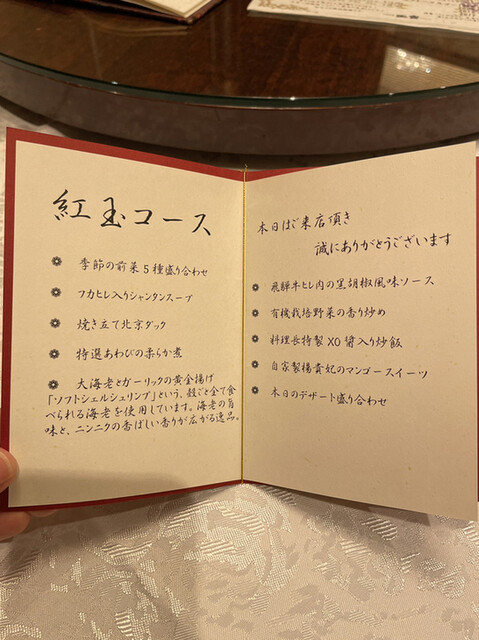 紅玉コース
季節の前菜5種盛り合わせ
フカヒレ入りシャンタンスープ
焼き立て北京ダック
特選あわびの柔らか煮
大海老とガーリックの黄金揚げ
「ソフトシェルシュリンプ」という、殻ごと全て食
べられる海老を使用しています。海老の旨
味と、ニンニクの香ばしい香りが広がる逸品。
本日はご来店頂き
誠にありがとうございます
飛騨牛ヒレ肉の黒胡椒風味ソース
有機栽培野菜の香り炒め
料理長特製XO醤入り炒飯
自家製楊貴妃のマンゴースイーツ
本日のデザート盛り合わせ